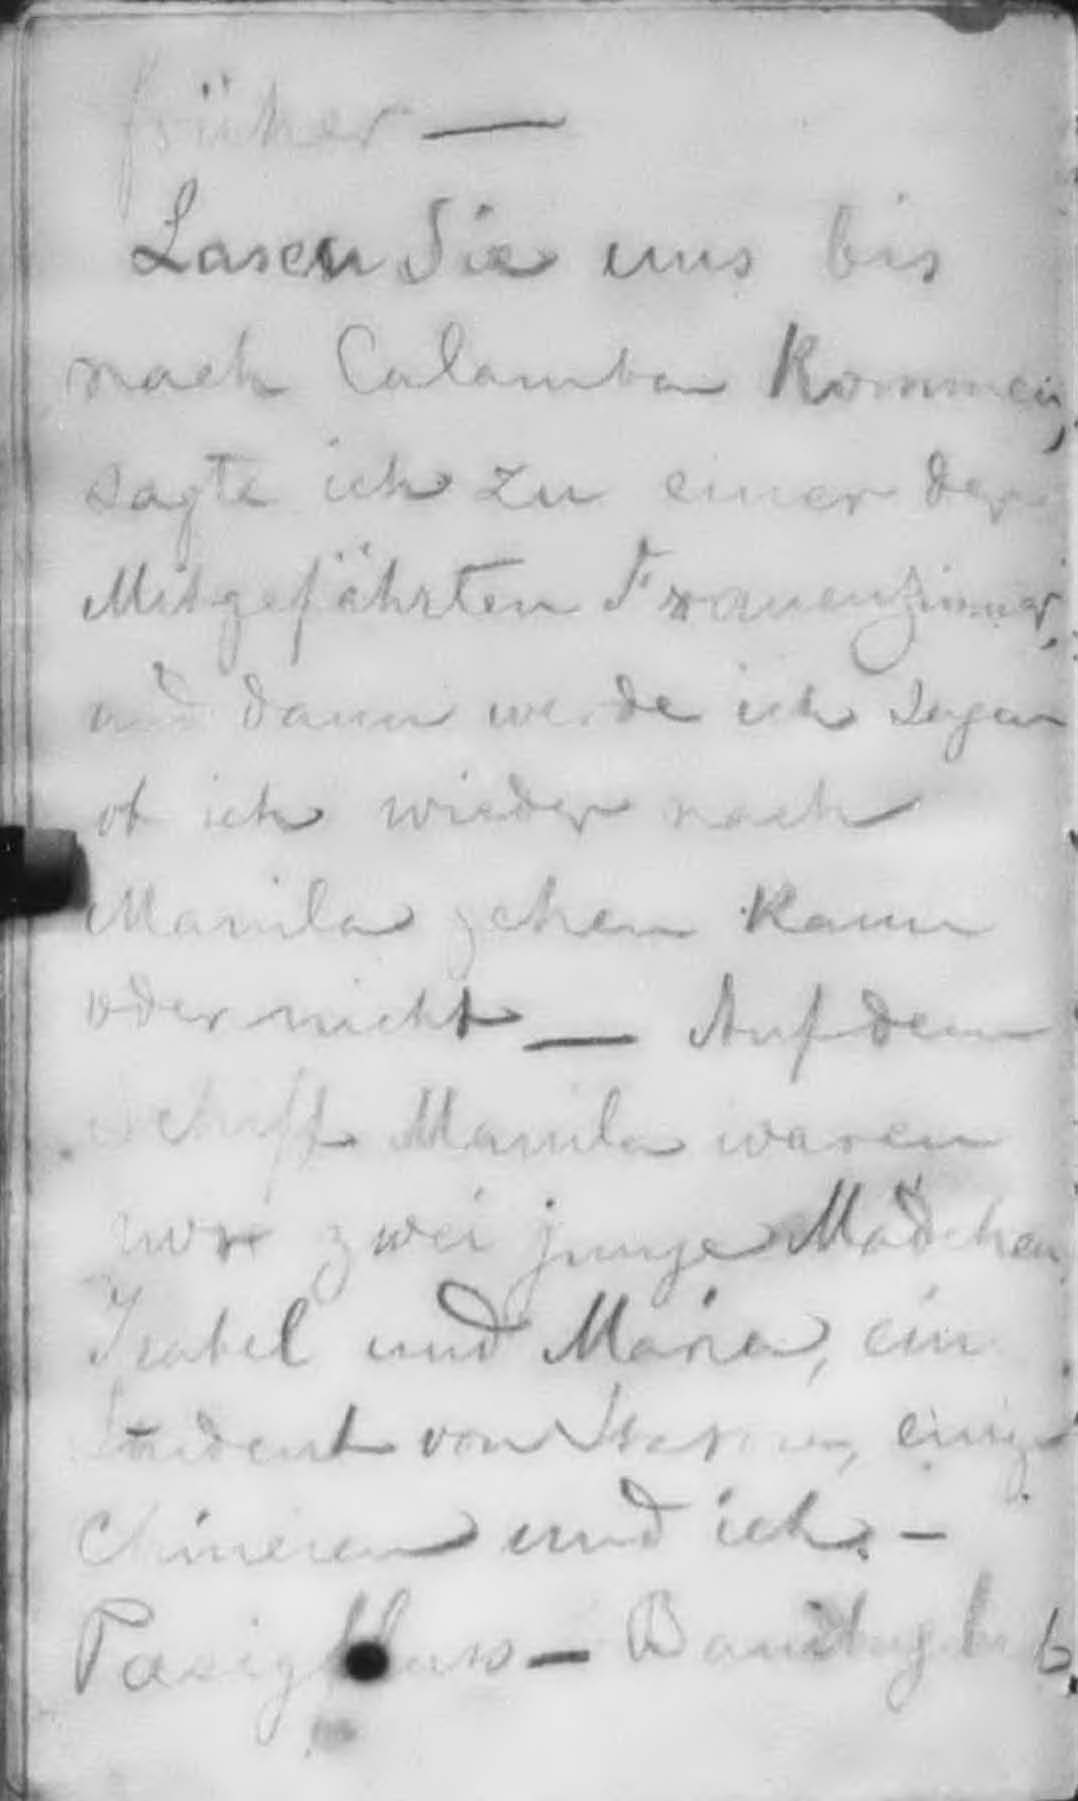 früher —
Lasen Sie uns bis
nach Calamba kommen,
sagte ich zu einer der
Mitgefährten Frauenzimmer,
und dann werde ich sagen
ob ich wieder nach
Manila gehen kann
oder nicht — Auf dem
Schiff Manila waren
nur zwei junge Mädchen,
Isabel und Maria, ein
Student von einige
Chinesen und ich. —
Pasigfluss —